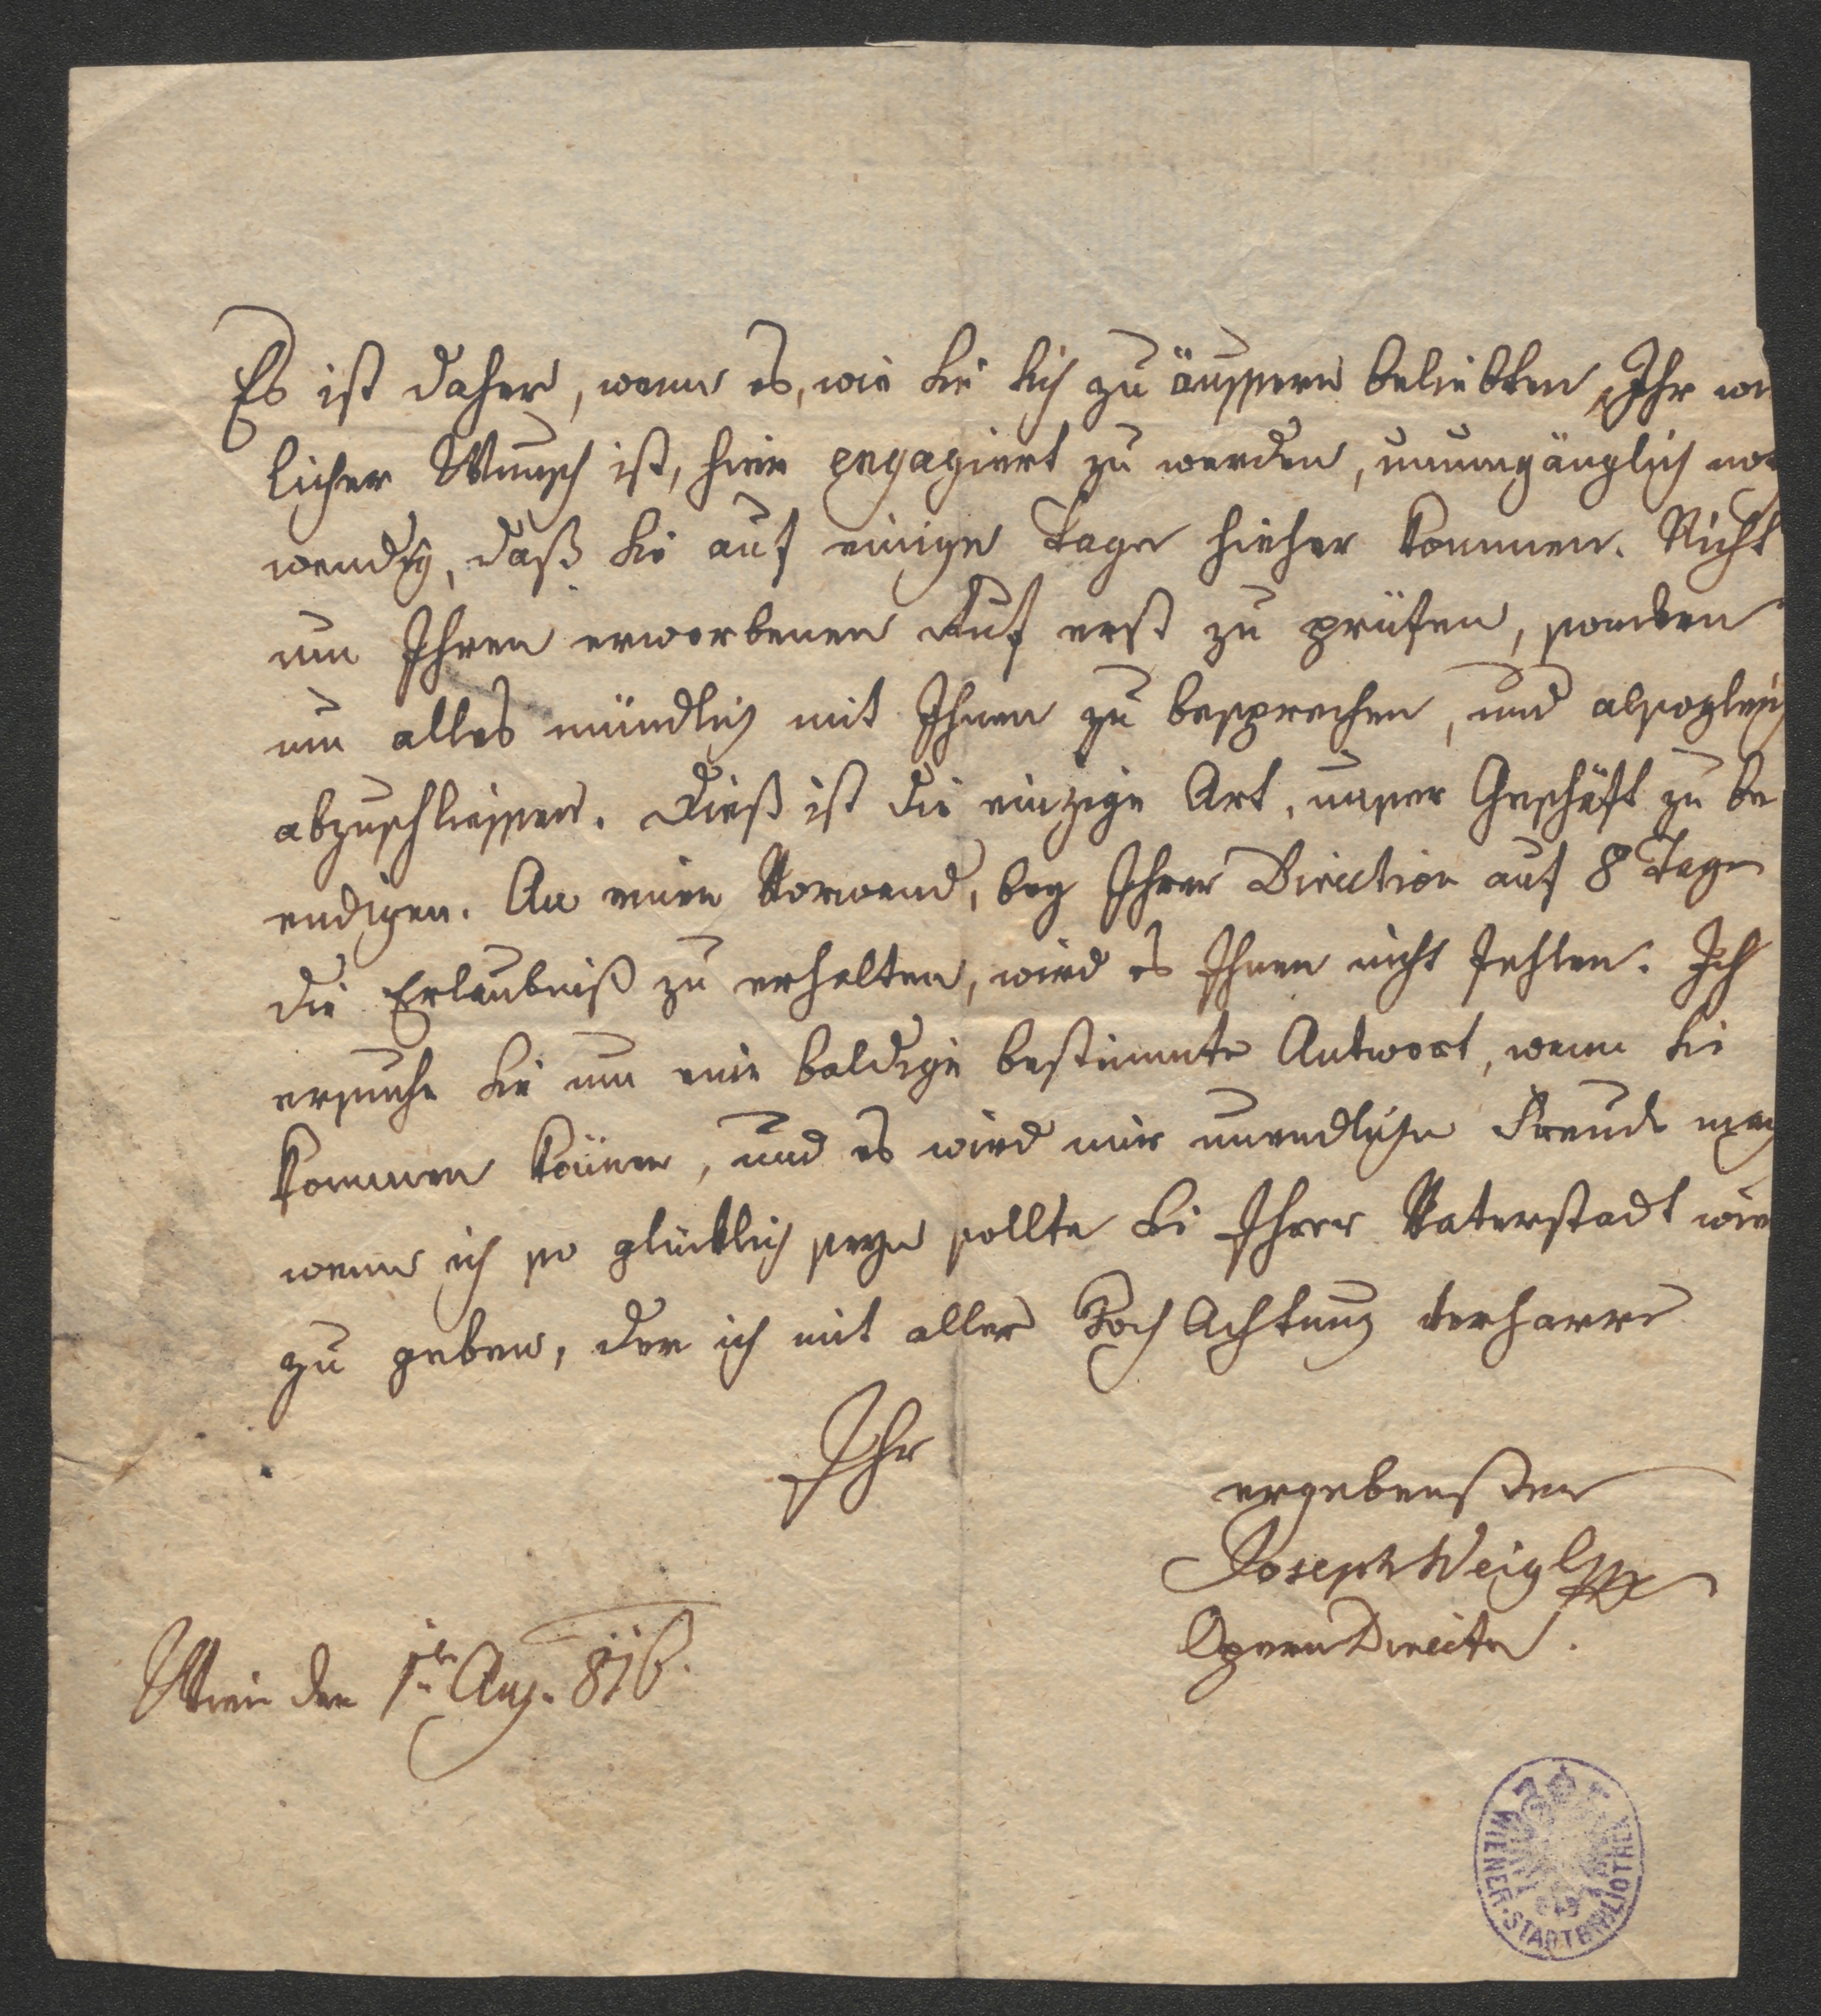 Es ist daher, wenn es, wie Sie sich zu äussern beliebten, Ihr wi
licher Wunsch ist, hier engagiert zu werden, unumgänglich not
wendig, daß Sie auf einige Tage hieher kommen. Nicht
um Ihren erworbenen Ruf erst zu prüfen, sondern
um alles mündlich mit Ihnen zu besprechen, und alsogleich
abzuschliessen. Dieß ist die einzige Art, unser Geschäft zu be
endigen. An einen Vorwand, bey Ihrer Direction auf 8 Tage
die Erlaubniß zu erhalten, wird es Ihnen nicht fehlen. Ich
ersuche Sie um eine baldige bestimmte Antwort, wenn Sie
kommen können, und es wird mir unendliche Freude mach
wenn ich so glücklich seyn sollte Sie Ihrer Vaterstadt wie
zu geben, der ich mit aller HochAchtung verharre
Ihr
ergebenster
Joseph Weigl
OpernDirector.
Wien den 1ten Aug. 816.
WIENER STADTBIBLIOTHEK